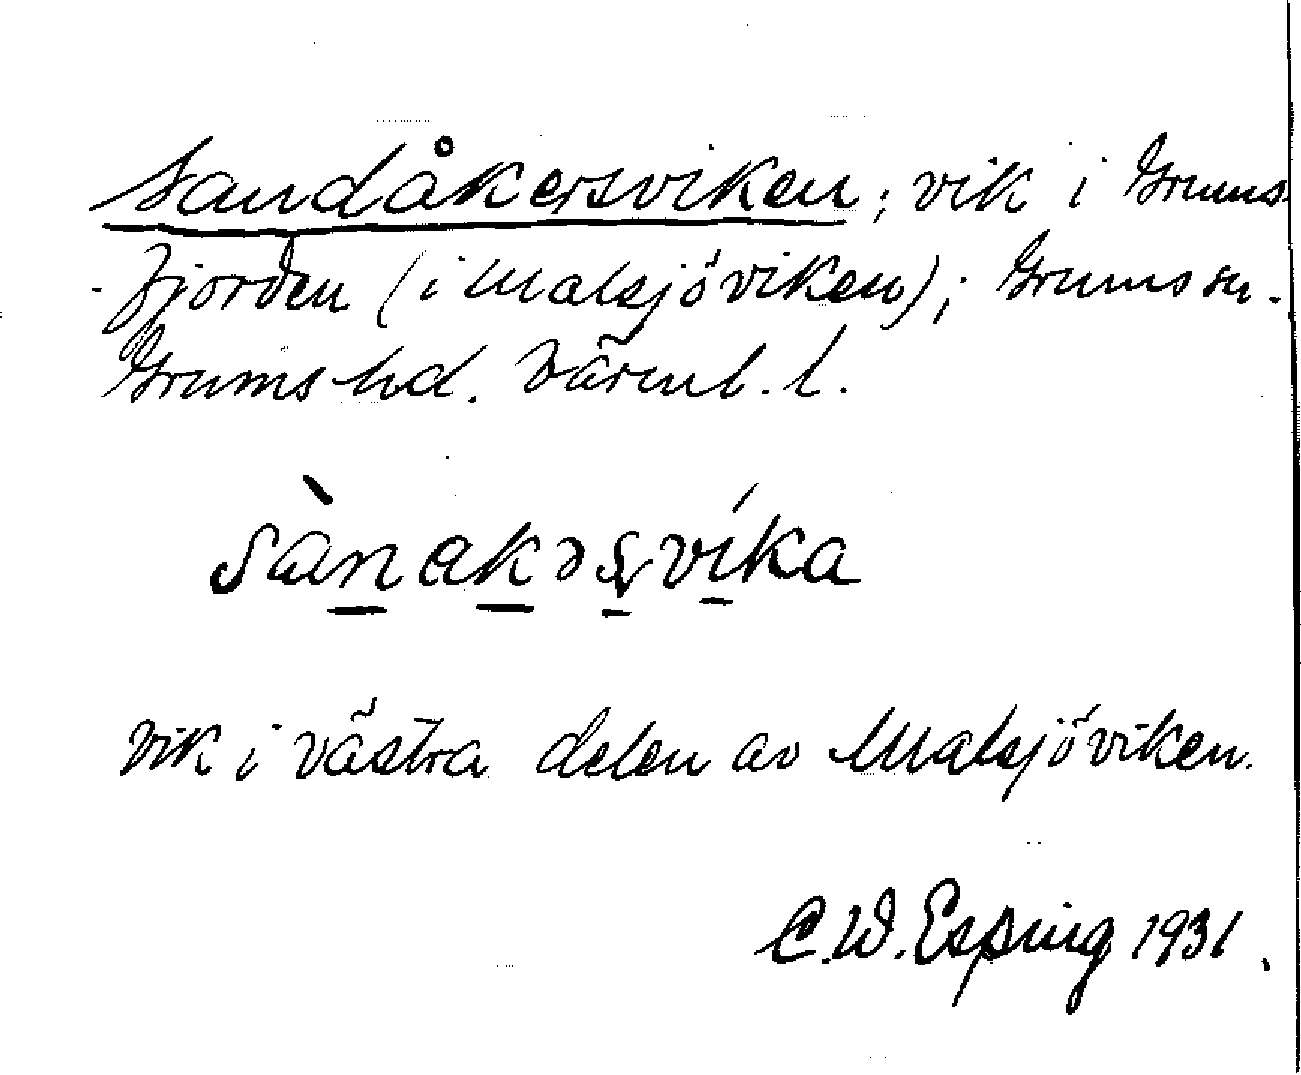 Sandåkersviken; vik i Grums
-fjorden (i Malsjöviken); Grums sn.
Grums hd. Värml. l.
sànakəs̨víka
Vik i västra delen av Malsjöviken.
C.W. Esping 1931.